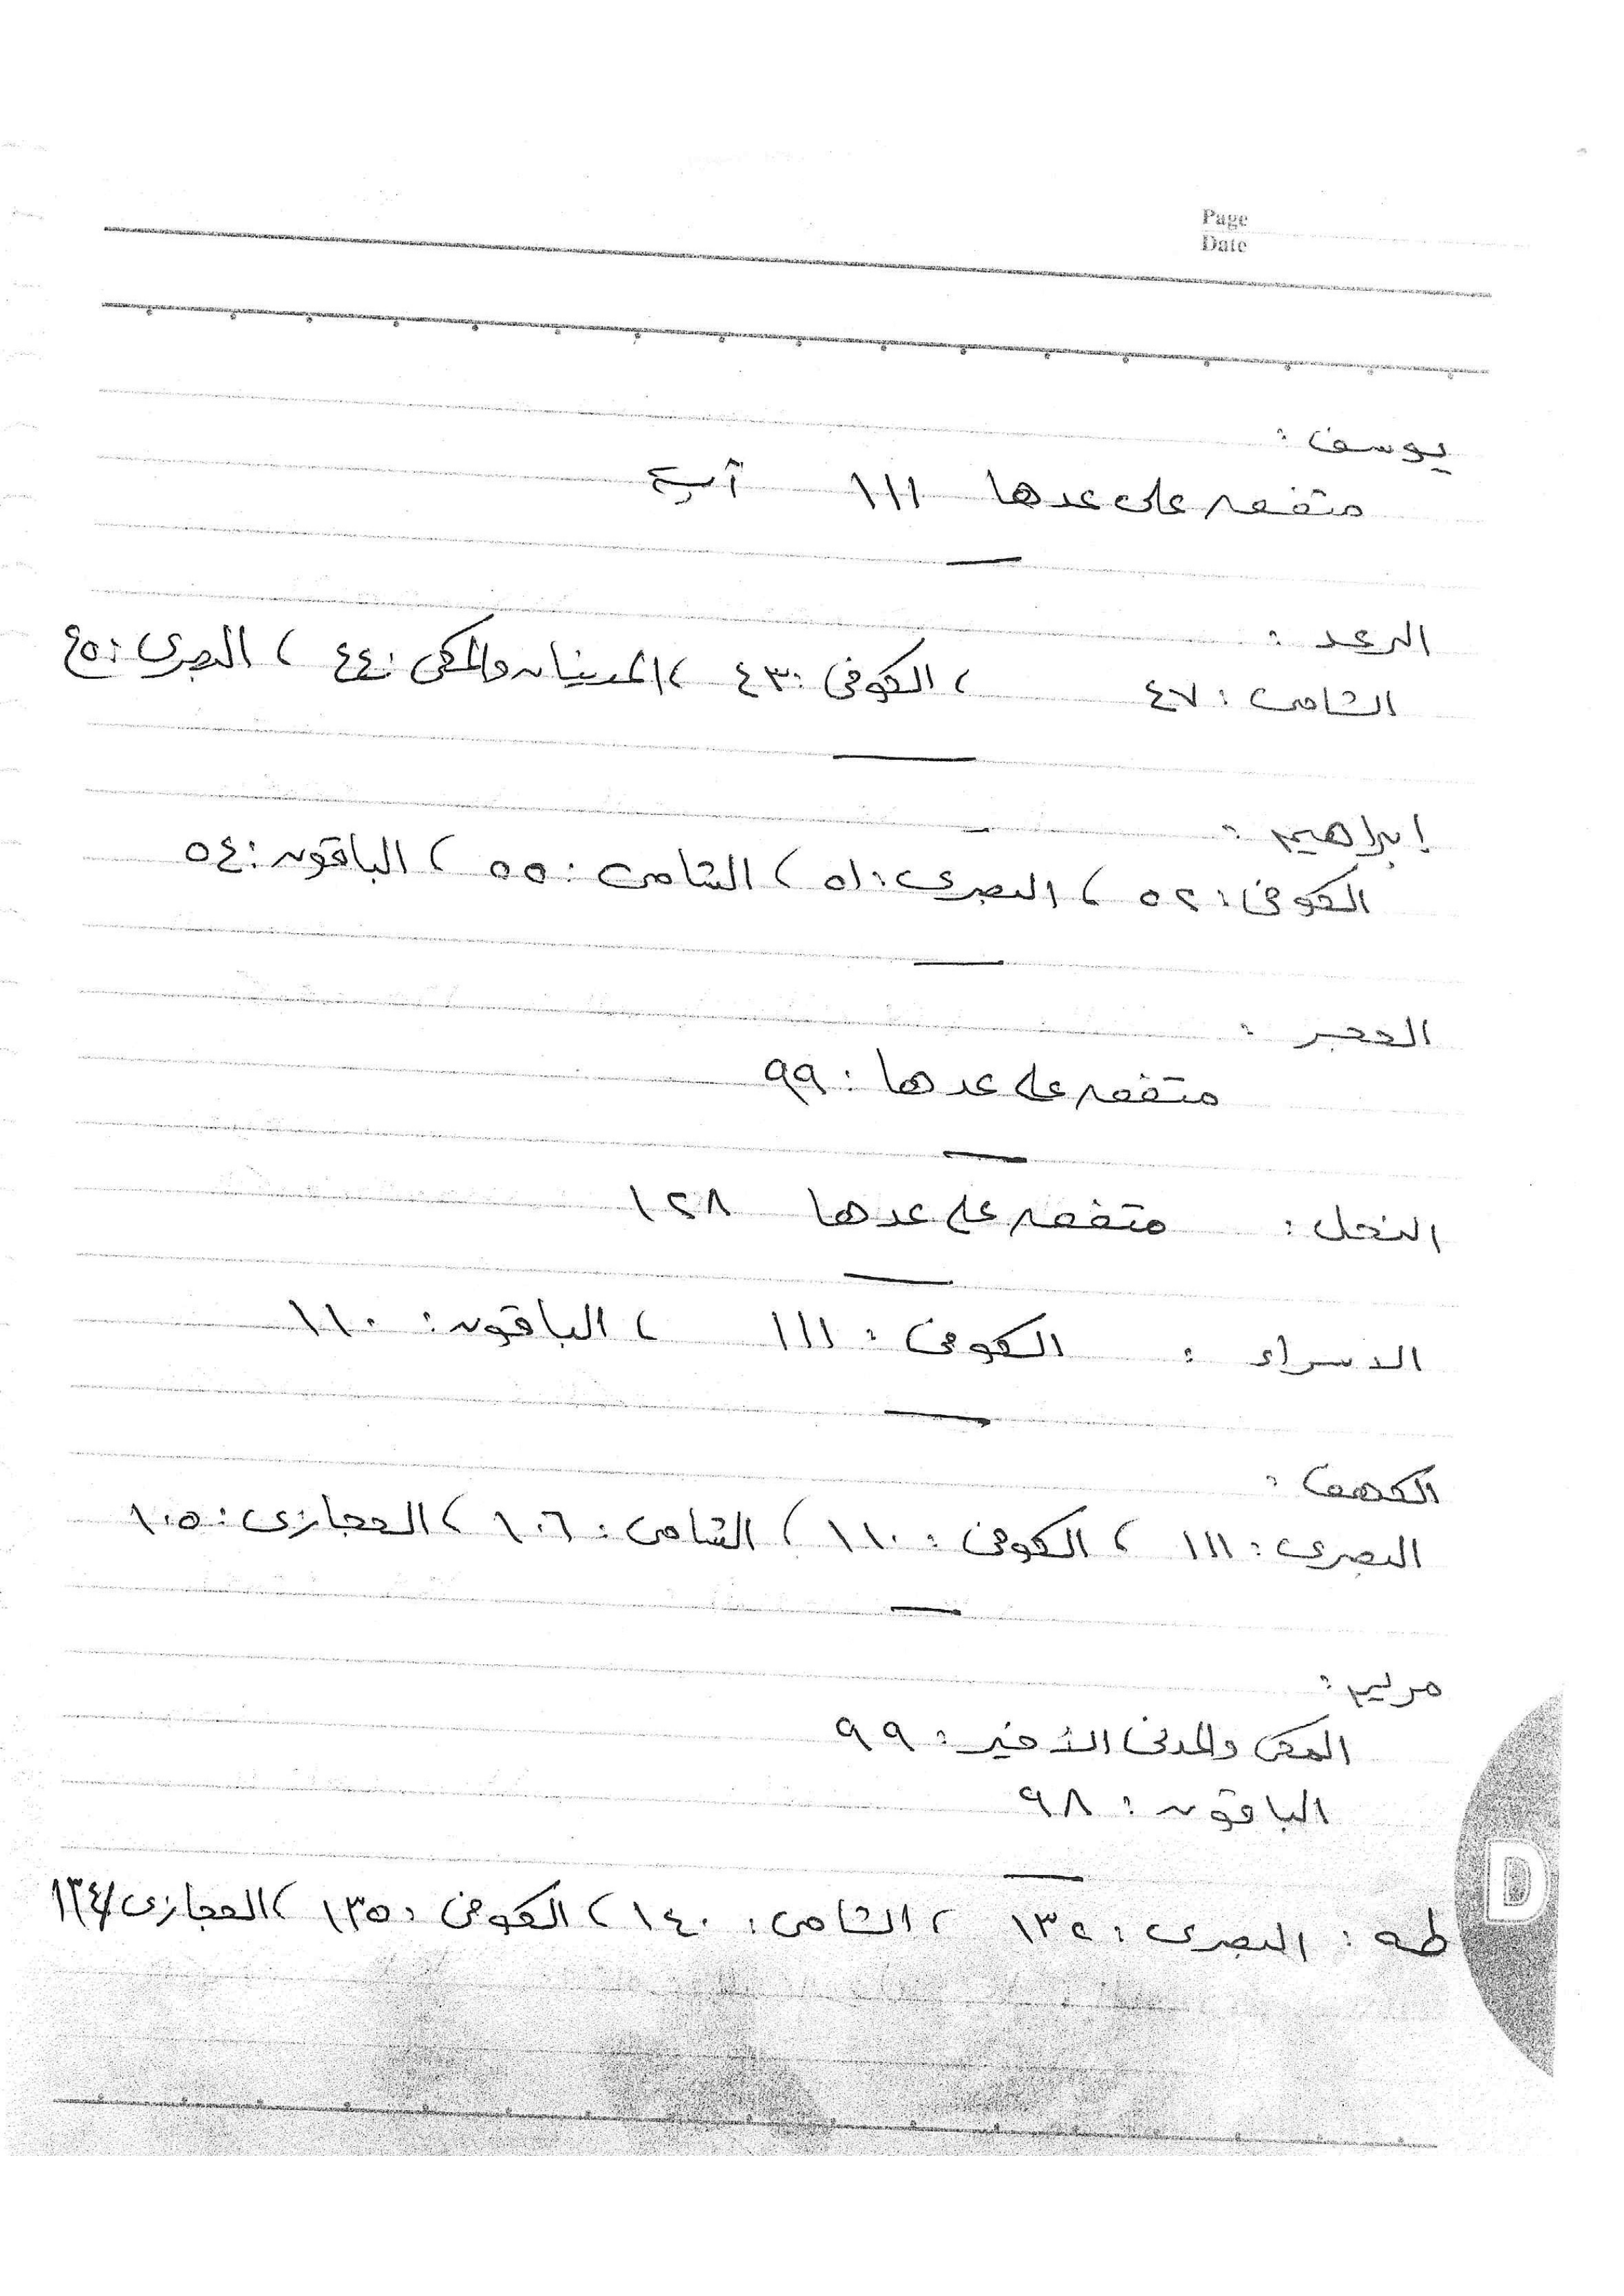 Page
Date
يوسف :
متفق على عدها ١١١ آية
الرعد :
الشامى : ٤٧ ، الكوفى : ٤٣ ، المدنيان والمكى : ٤٤ ، البصرى : ٤٥
إبراهيم :
الكوفى : ٥٢ ، البصرى : ٥١ ، الشامى : ٥٥ ، الباقون : ٥٤
الحجر :
متفق على عدها : ٩٩
النحل : متفق على عدها ١٢٨
الاسراء : الكوفى : ١١١ ، الباقون : ١١٠
الكهف :
البصرى : ١١١ ، الكوفى : ١١٠ ، الشامى : ١٠٦ ، الحجازى : ١٠٥
مريم :
المكى والمدنى الأخير : ٩٩
الباقون : ٩٨
طه : البصرى : ١٣٢ ، الشامى : ١٤٠ ، الكوفى : ١٣٥ ، الحجازى / ١٣٤
D